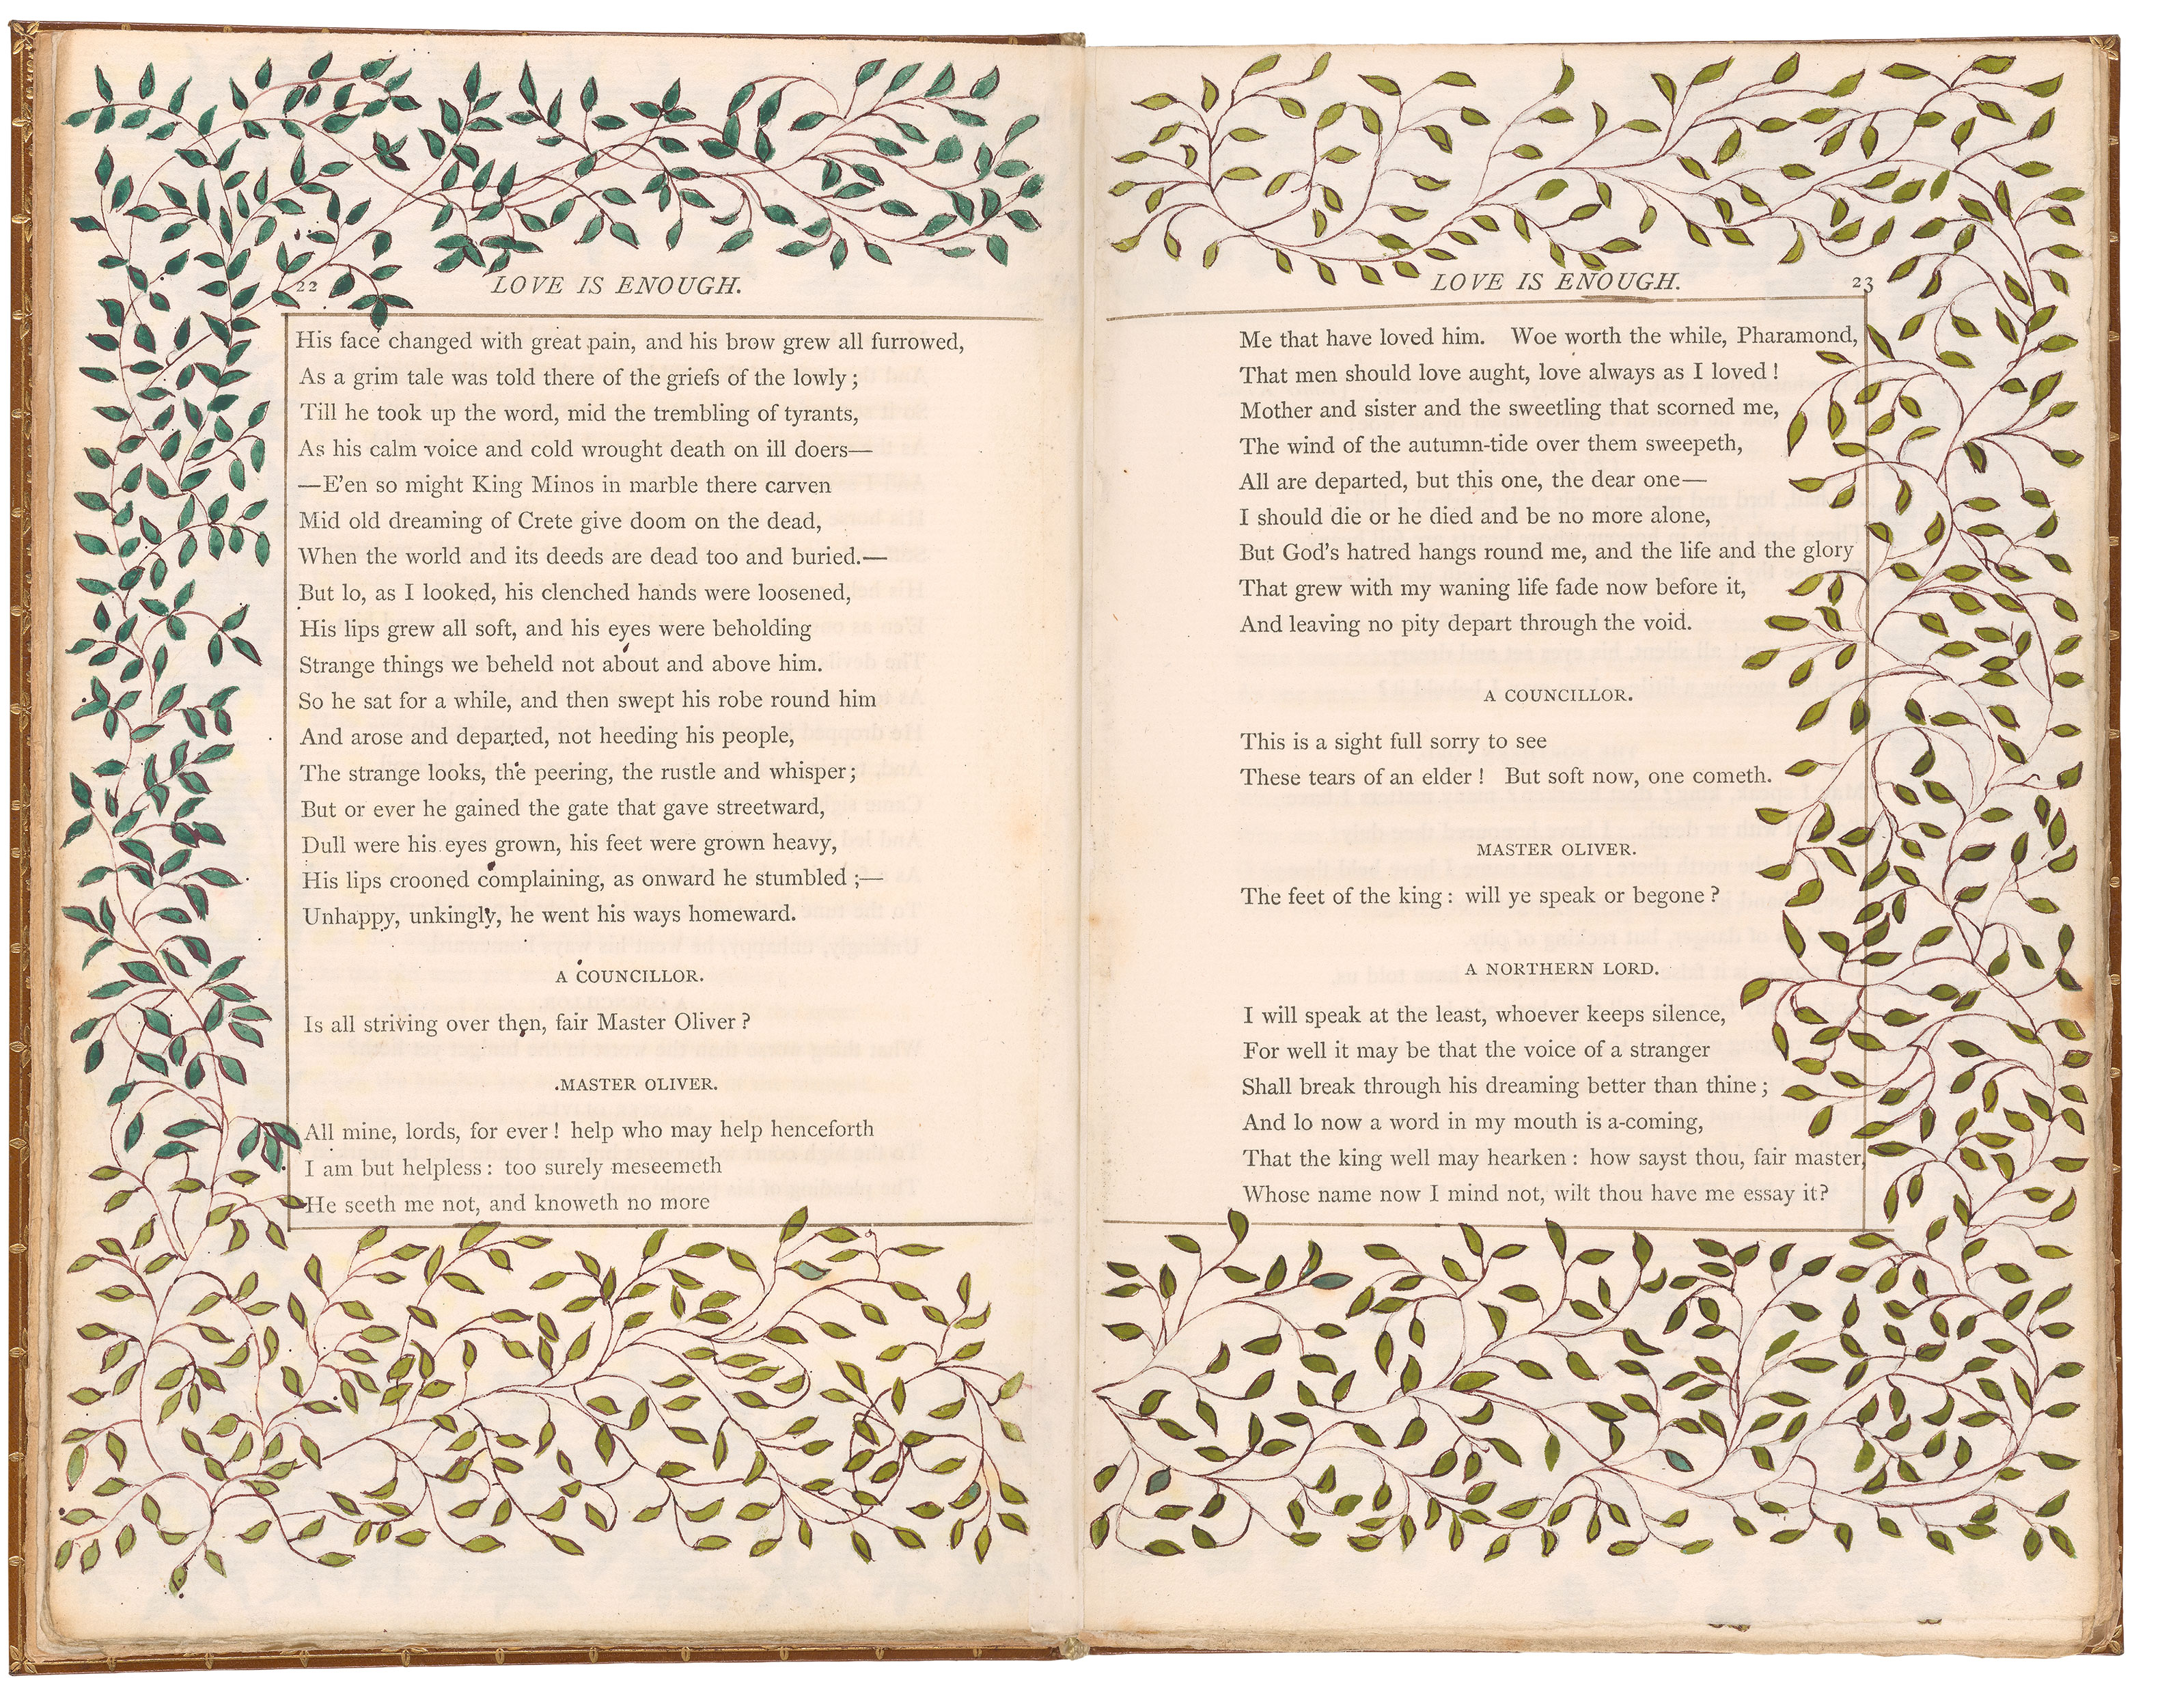 22
LOVE IS ENOUGH.
His face changed with great pain, and his brow grew all furrowed,
As a grim tale was told there of the griefs of the lowly ;
Till he took up the word, mid the trembling of tyrants,
As his calm voice and cold wrought death on ill doers—
—E'en so might King Minos in marble there carven
Mid old dreaming of Crete give doom on the dead,
When the world and its deeds are dead too and buried.—
But lo, as I looked, his clenched hands were loosened,
His lips grew all soft, and his eyes were beholding
Strange things we beheld not about and above him.
So he sat for a while, and then swept his robe round him
And arose and departed, not heeding his people,
The strange looks, the peering, the rustle and whisper ;
But or ever he gained the gate that gave streetward,
Dull were his eyes grown, his feet were grown heavy,
His lips crooned complaining, as onward he stumbled ;—
Unhappy, unkingly, he went his ways homeward.
A COUNCILLOR.
Is all striving over then, fair Master Oliver ?
MASTER OLIVER.
All mine, lords, for ever ! help who may help henceforth
I am but helpless : too surely meseemeth
He seeth me not, and knoweth no more
LOVE IS ENOUGH.
23
Me that have loved him. Woe worth the while, Pharamond,
That men should love aught, love always as I loved !
Mother and sister and the sweetling that scorned me,
The wind of the autumn-tide over them sweepeth,
All are departed, but this one, the dear one—
I should die or he died and be no more alone,
But God's hatred hangs round me, and the life and the glory
That grew with my waning life fade now before it,
And leaving no pity depart through the void.
A COUNCILLOR.
This is a sight full sorry to see
These tears of an elder ! But soft now, one cometh.
MASTER OLIVER.
The feet of the king : will ye speak or begone ?
A NORTHERN LORD.
I will speak at the least, whoever keeps silence,
For well it may be that the voice of a stranger
Shall break through his dreaming better than thine ;
And lo now a word in my mouth is a-coming,
That the king well may hearken : how sayst thou, fair master,
Whose name now I mind not, wilt thou have me essay it?